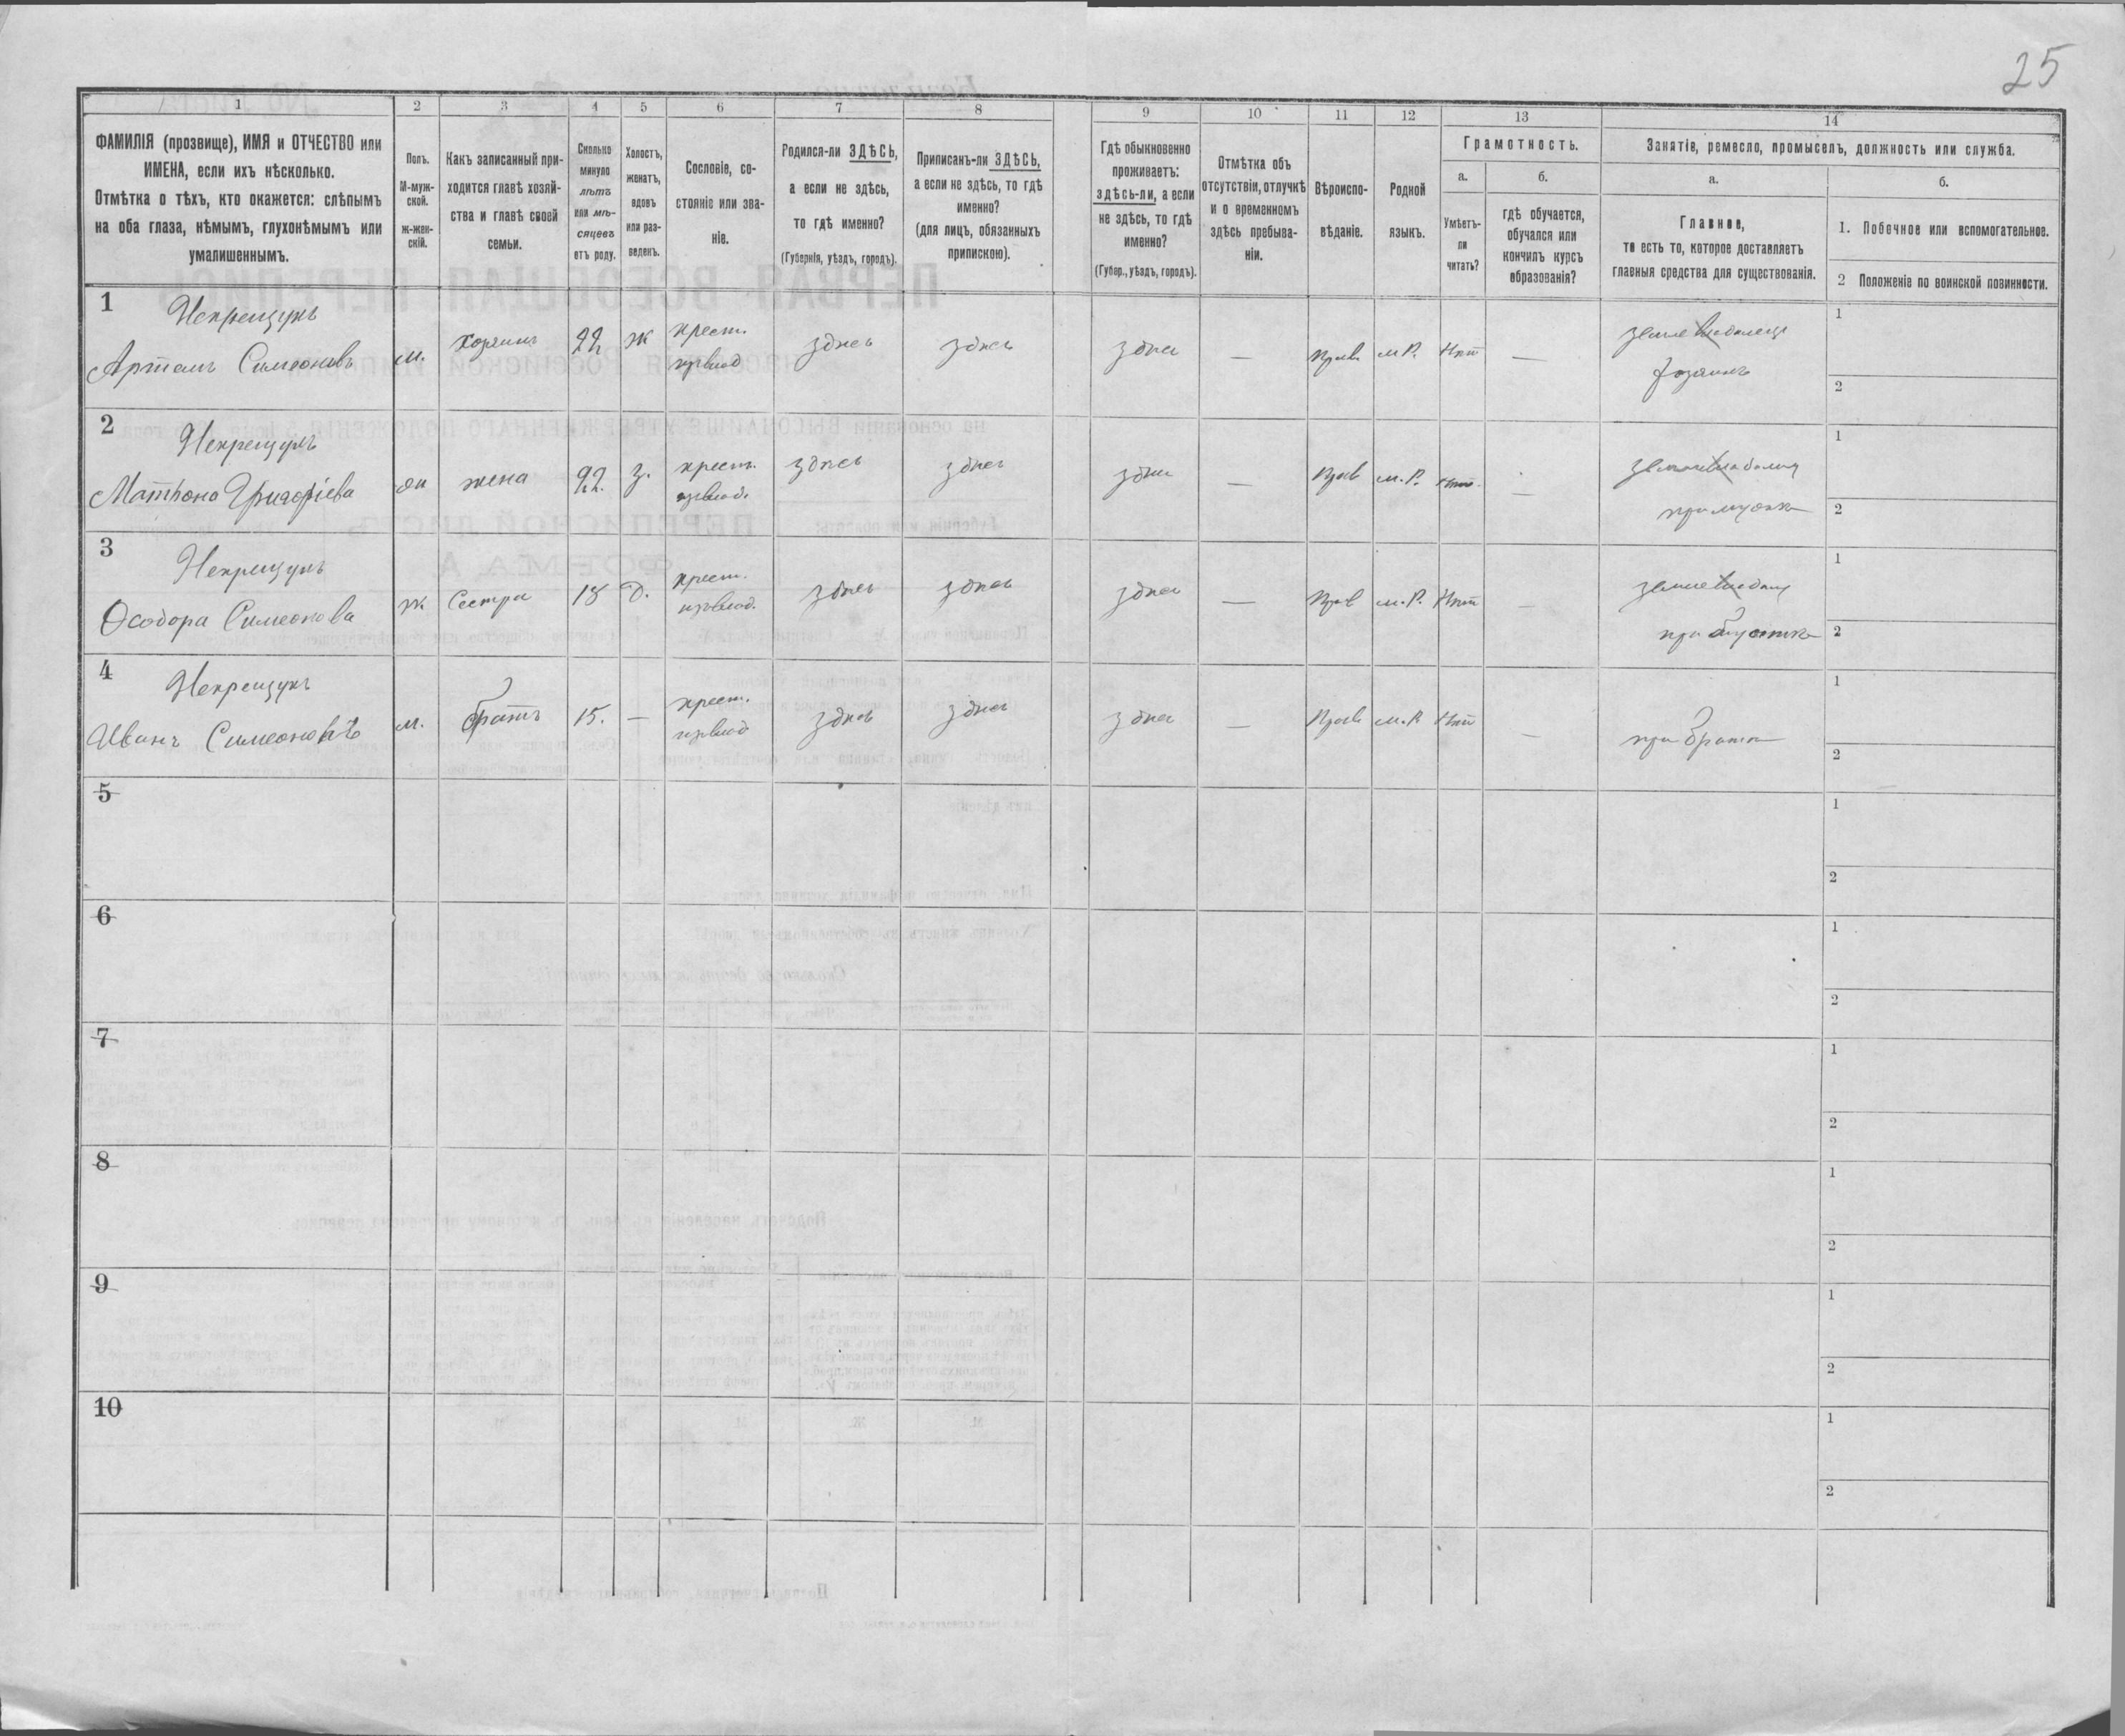 25
1 2 3 4 5 6 7 8 9 10 11 12 13 14
ФАМИЛІЯ (прозвище), ИМЯ и ОТЧЕСТВО или
ИМЕНА, если ихъ нѣсколько.
Отмѣтка о тѣхъ, кто окажется: слѣпымъ
на оба глаза, нѣмымъ, глухонѣмымъ или
умалишеннымъ.
Полъ.
М-муж-
ской.
ж-жен-
скій.
Какъ записанный при-
ходится главѣ хозяй-
ства и главѣ своей
семьи.
Сколько
минуло
лѣтъ
или мѣ-
сяцевъ
отъ роду.
Холостъ,
женатъ,
вдовъ
или раз-
веденъ.
Сословіе, со-
стояніе или зва-
ніе.
Родился-ли ЗДѢСЬ,
а если не здѣсь,
то гдѣ именно?
(Губернія, уѣздъ, городъ).
Приписанъ-ли ЗДѢСЬ,
а если не здѣсь, то гдѣ
именно?
(для лицъ, обязанныхъ
припискою).
Гдѣ обыкновенно
проживаетъ:
здѣсь-ли, а если
не здѣсь, то гдѣ
именно?
(Губер., уѣздъ, городъ).
Отмѣтка объ
отсутствіи, отлучкѣ
и о временномъ
здѣсь пребыва-
ніи.
Вѣроиспо-
вѣданіе.
Родной
языкъ.
Грамотность.
а.
Умѣетъ-
ли
читать?
б.
гдѣ обучается,
обучался или
кончилъ курсъ
образованія?
Занятіе, ремесло, промыселъ, должность или служба.
а.
Главное,
то есть то, которое доставляетъ
главныя средства для существованія.
б.
1. Побочное или вспомогательное.
2 Положеніе по воинской повинности.
1 Некрещукъ
Артемъ Симеоновъ м. хозяинъ 22 ж крест. здѣсь здѣсь здѣсь — Прав м.Р. Нѣт —
хозяинъ
1
2
2 Некрещукъ
Матрона Григоріева жена 22. з. крест. здѣсь здѣсь здѣсь — Прав м.Р. Нѣт —
при мужѣ
1
2
3 Некрещукъ
Ѳеодора Симеонова ж Сестра 18 д. крест. здѣсь здѣсь здѣсь — Прав м.Р. Нѣт —
1
2
4 Некрещукъ
Иванъ Симеоновъ м. братъ 15. — крест. здѣсь здѣсь здѣсь — Прав м.Р Нѣт —
при братѣ
1
2
5
1
2
6
1
2
7
1
2
8
1
2
9
1
2
10
1
2